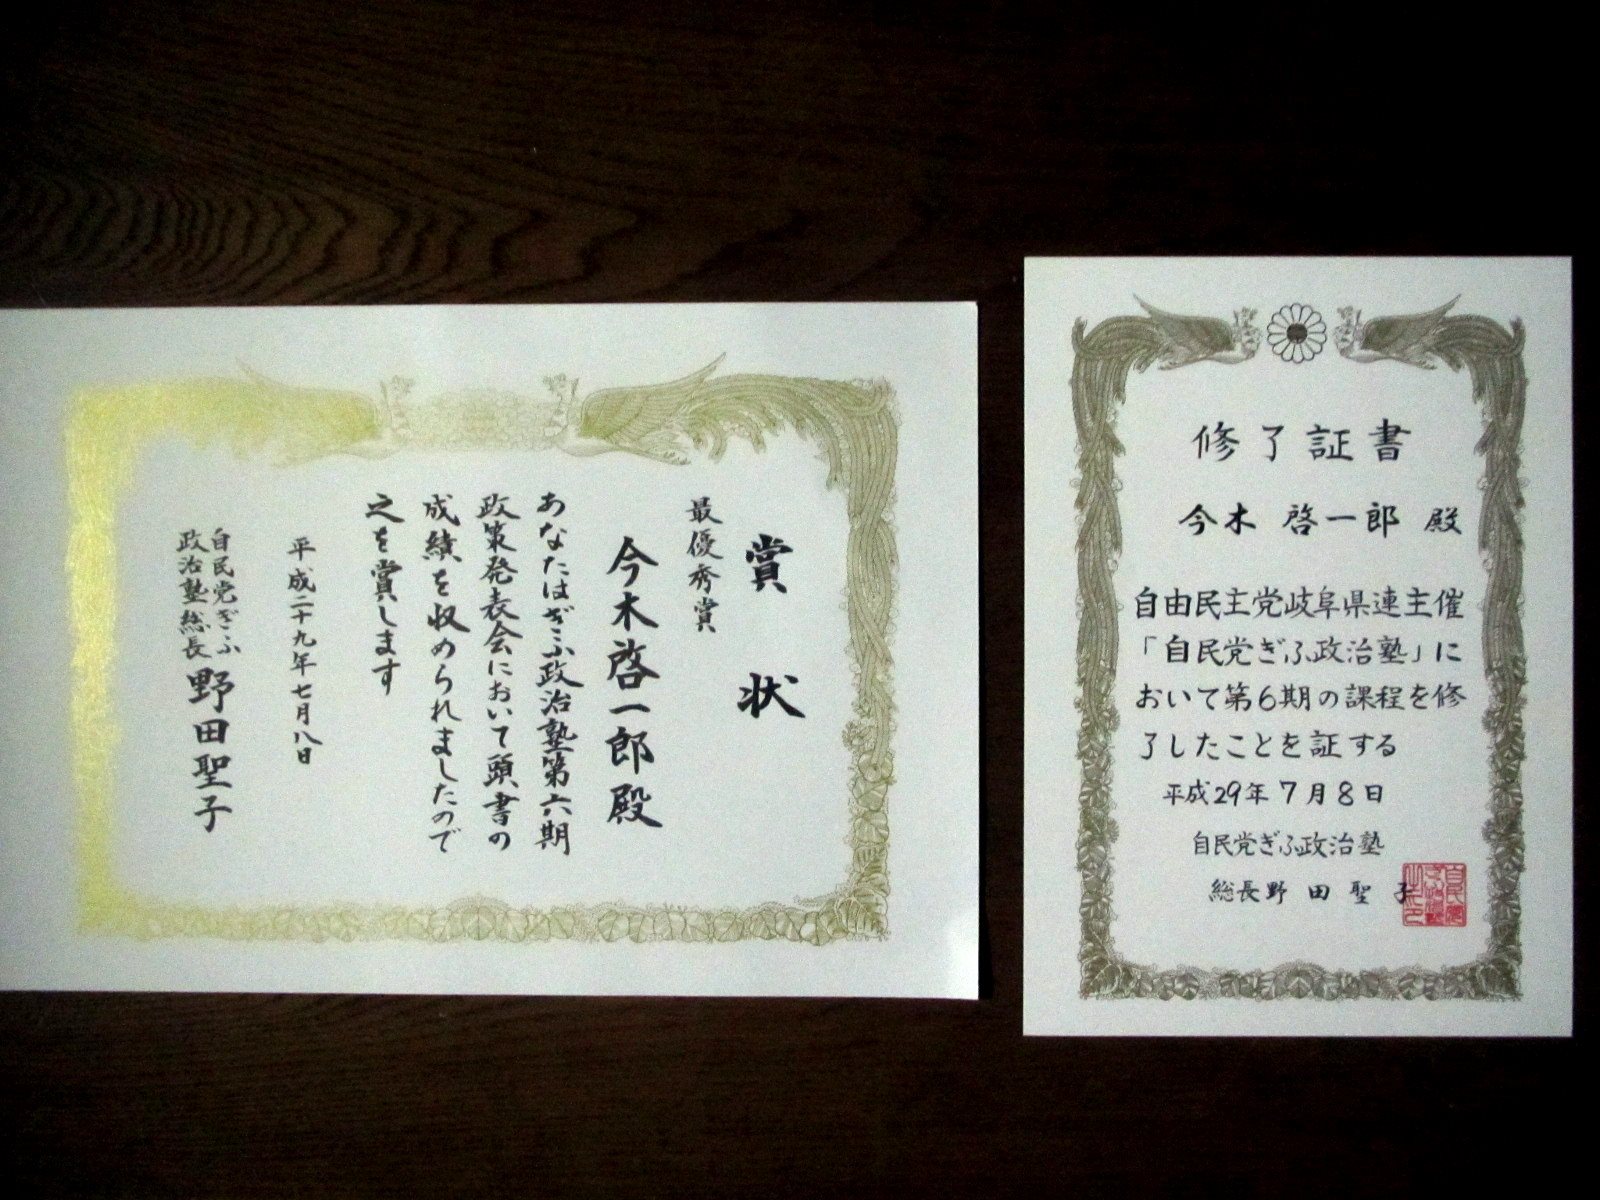 賞状
最優秀賞
今木啓一郎殿
あなたはぎふ政治塾第六期
政策発表会において頭書の
成績を収められましたので
之を賞します
平成二十九年七月八日
自民党ぎふ
政治塾総長 野田聖子
修了証書
今木 啓一郎 殿
自由民主党岐阜県連主催
「自民党ぎふ政治塾」に
おいて第6期の課程を修
了したことを証する
平成29年7月8日
自民党ぎふ政治塾
総長野田聖子